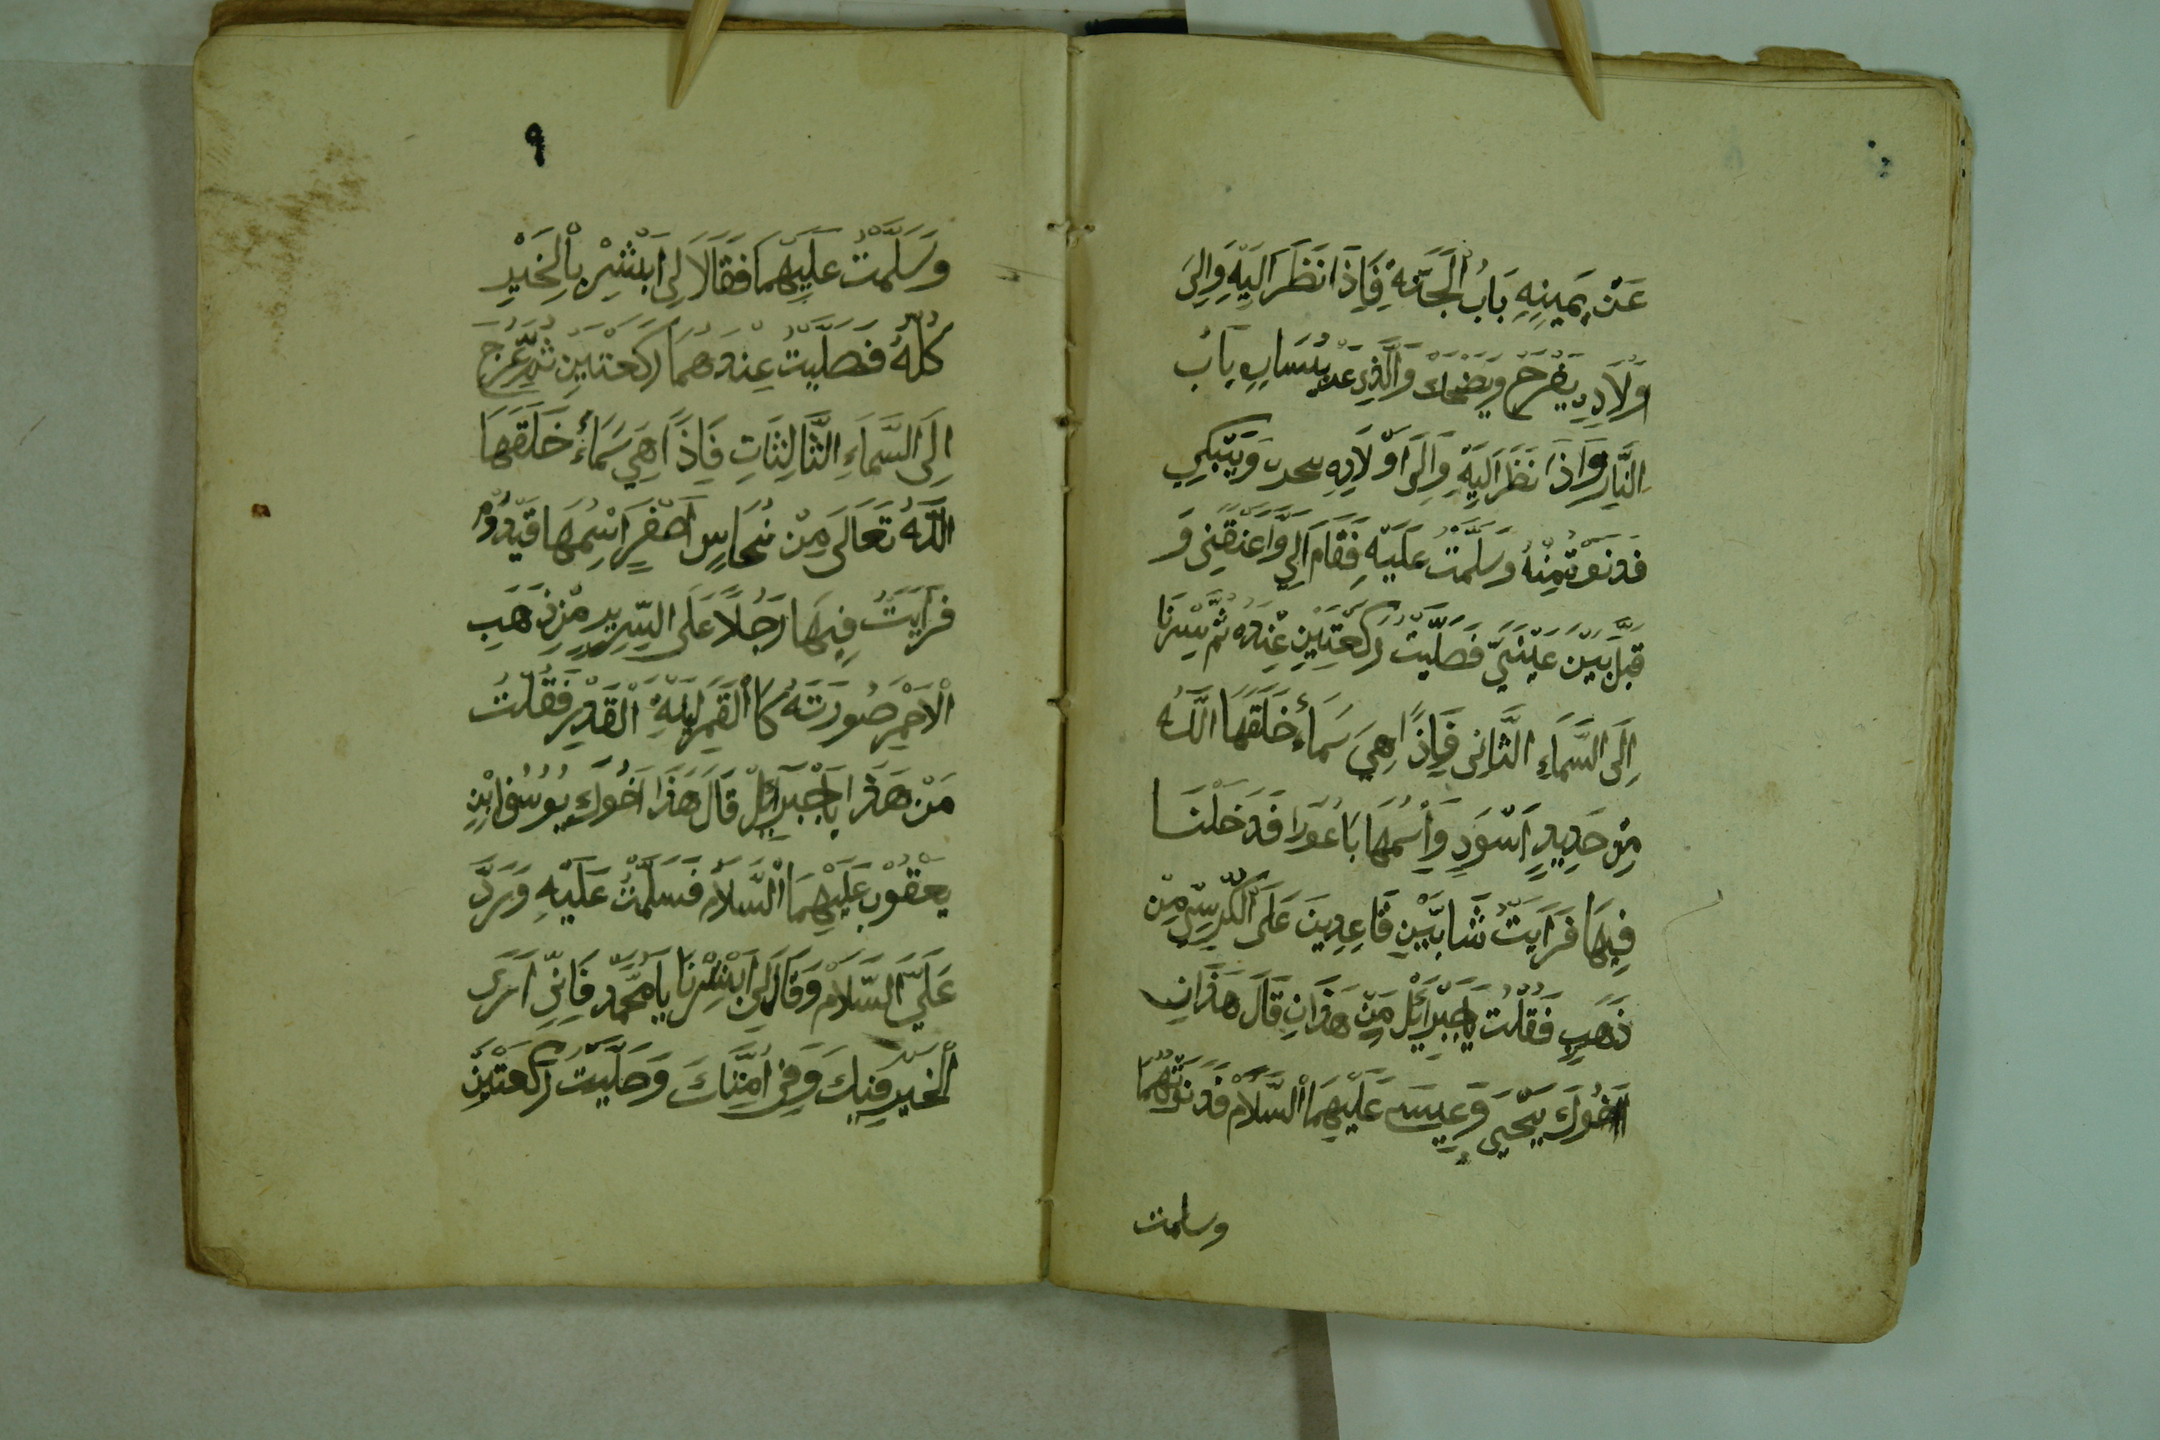 عَنْ يَمِينِهِ بَابُ الْجَنَّةِ فَاِذَا نَظَرَ اِلَيْهِ وَاِلَى
وَلَادِهِ يَفْرَحُ وَيَضْحَكُ وَالَّذِى عَنْ يُسَارِهِ بَابُ
النَّارِ وَاِذَا نَظَرَ اِلَيْهِ وَاِلَى اَوْلَادِهِ وَيَبْكِي
فَدَنَوْتُ مِنْهُ وَسَلَّمْتُ عَلَيْهِ فَقَامَ اِلَىَّ وَاَعْنَقَنِى وَ
قَبَّلَ بَيْنَ عَيْنَيَّ فَصَلَّيْتُ رَكْعَتَيْنِ عِنْدَهُ ثُمَّ سِرْنَا
اِلَى السَّمَاءِ الثَّانِى فَاِذًا هِيَ سَمَاءٌ خَلَقَهَا اللّٰهُ
مِنْ حَدِيدٍ اَسْوَدِ وَاِسْمُهَا بَاعُورَا فَدَخَلْنَا
فِيهَا فَرَاَيْتُ شَابَّيْنِ قَاعِدِينَ عَلَى الْكُرْسِىِّ مِنْ
ذَهَبٍ فَقُلْتُ يَاجِبْرَائِلُ مَنْ هَذَانِ قَالَ هَذَانِ
اَخُوكَ يَحْيَى وَعِيسَى عَلَيْهِمَا السَّلَامْ فَدَنَوْتُهُمَا
وسلمت
٩
وَسَلَّمْتُ عَلَيْهِمَا فَقَالَا لِى اَبْشِرْ بِالْخَيْرِ
كُلِّهُ فَصَلَّيْتُ عِنْدَهُمَا رَكْعَتَيْنِ ثُمَّ عُرِجَ
اِلَى السَّمَاءِ الثَّالِثَاتِ فَاِذًا هِيَ سَمَاءٌ خَلَقَهَا
اللّٰهُ تَعَالَى مِنْ نُحَاسٍ اَصْفَرَ اِسْمُهَا قَيْدُوْمُ
فَرَاَيْتُ فِيهَا رَجُلًا عَلَى السَّرِيرِ مِنْ ذَهَبِ
الْاَحْمَرِ صُورَتَهُ كَاالْقَمَرِ لَيْلَةِ الْقَدْرِ فَقُلْتُ
مَنْ هَذَا يَاجِبْرَائِلُ قَالَ هَذَا اَخُوكَ يُوسُفُ ابْنِ
يَعْقُوْبَ عَلَيْهِمَا السَّلَامُ فَسَلَّمْتُ عَلَيْهِ وَرَدَّ
عَلَيَّ السَّلَامْ وَقَالَ لِى اَبْشِرْنَا يَا مُحَمَّدُ فَاِنِّى اَرَى
الْخَيْرَ فِيكَ وَفِى اُمَّتِكَ وَصَلَّيْتُ رَكْعَتَيْنِ